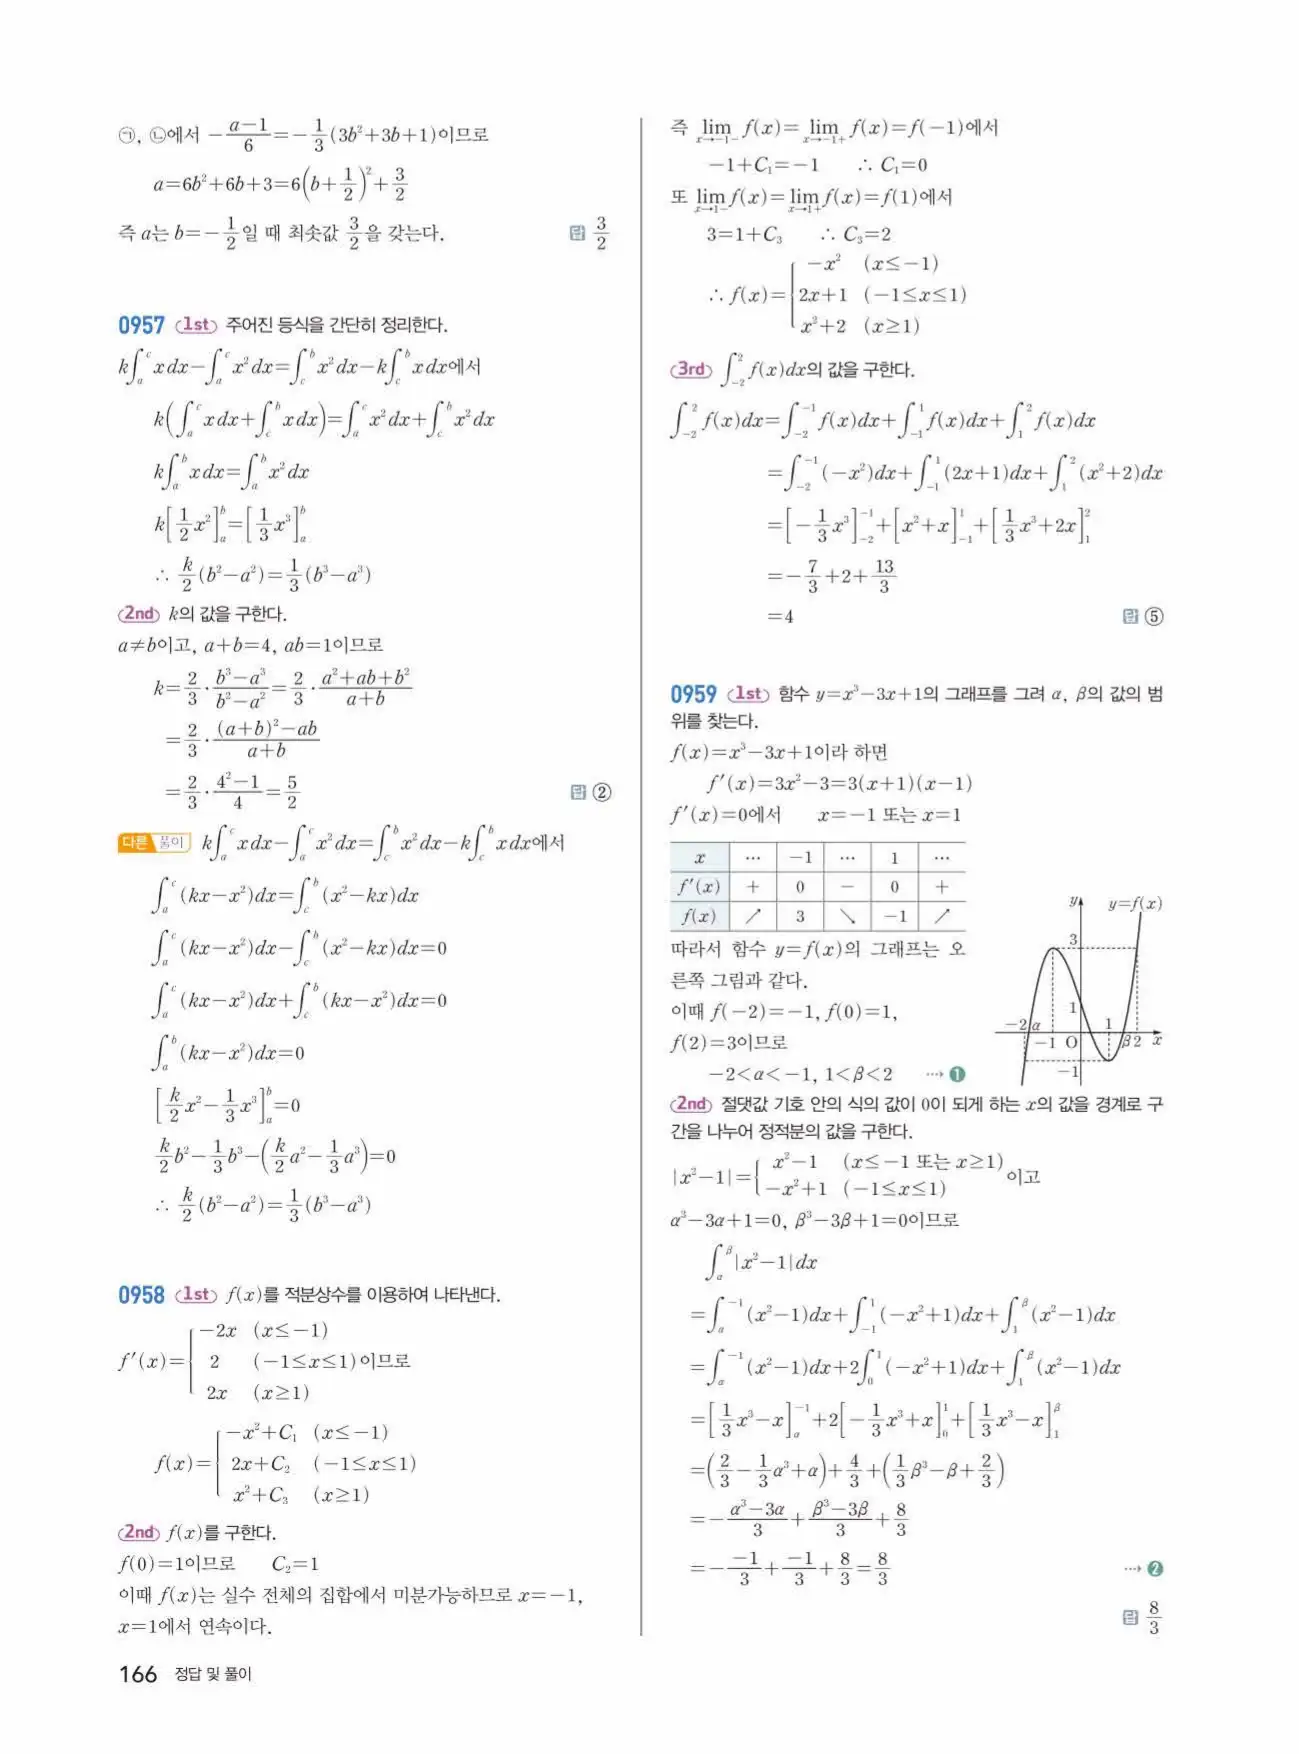 ㉠, ㉡에서 -\frac{a-1}{6}=-\frac{1}{3}(3b²+3b+1)이므로
a=6b²+6b+3=6(b+\frac{1}{2})²+\frac{3}{2}
즉 a는 b=-\frac{1}{2}일 때 최솟값 \frac{3}{2}을 갖는다. 답 \frac{3}{2}
0957 1st 주어진 등식을 간단히 정리한다.
k∫_a^c x dx-∫_a^c x² dx=∫_c^b x² dx-k∫_c^b x dx에서
k(∫_a^c x dx+∫_c^b x dx)=∫_a^c x² dx+∫_c^b x² dx
k∫_a^b x dx=∫_a^b x² dx
k[\frac{1}{2}x²]_a^b=[\frac{1}{3}x³]_a^b
∴ \frac{k}{2}(b²-a²)=\frac{1}{3}(b³-a³)
2nd k의 값을 구한다.
a≠b이고, a+b=4, ab=1이므로
k=\frac{2}{3}·\frac{b³-a³}{b²-a²}=\frac{2}{3}·\frac{a²+ab+b²}{a+b}
=\frac{2}{3}·\frac{(a+b)²-ab}{a+b}
=\frac{2}{3}·\frac{4²-1}{4}=\frac{5}{2} 답 ②
다른 풀이 k∫_a^c x dx-∫_a^c x² dx=∫_c^b x² dx-k∫_c^b x dx에서
∫_a^c (kx-x²)dx=∫_c^b (x²-kx)dx
∫_a^c (kx-x²)dx-∫_c^b (x²-kx)dx=0
∫_a^c (kx-x²)dx+∫_c^b (kx-x²)dx=0
∫_a^b (kx-x²)dx=0
[\frac{k}{2}x²-\frac{1}{3}x³]_a^b=0
\frac{k}{2}b²-\frac{1}{3}b³-(\frac{k}{2}a²-\frac{1}{3}a³)=0
∴ \frac{k}{2}(b²-a²)=\frac{1}{3}(b³-a³)
0958 1st f(x)를 적분상수를 이용하여 나타낸다.
-2x (x≤-1)
f′(x)={ 2 (-1≤x≤1)이므로
2x (x≥1)
-x²+C₁ (x≤-1)
f(x)={ 2x+C₂ (-1≤x≤1)
x²+C₃ (x≥1)
2nd f(x)를 구한다.
f(0)=1이므로 C₂=1
이때 f(x)는 실수 전체의 집합에서 미분가능하므로 x=-1,
x=1에서 연속이다.
즉 lim_{x→-1-} f(x)=lim_{x→-1+} f(x)=f(-1)에서
-1+C₁=-1 ∴ C₁=0
또 lim_{x→1-} f(x)=lim_{x→1+} f(x)=f(1)에서
3=1+C₃ ∴ C₃=2
-x² (x≤-1)
∴ f(x)={ 2x+1 (-1≤x≤1)
x²+2 (x≥1)
3rd ∫_{-2}^2 f(x)dx의 값을 구한다.
∫_{-2}^2 f(x)dx=∫_{-2}^{-1} f(x)dx+∫_{-1}^1 f(x)dx+∫_1^2 f(x)dx
=∫_{-2}^{-1} (-x²)dx+∫_{-1}^1 (2x+1)dx+∫_1^2 (x²+2)dx
=[-\frac{1}{3}x³]_{-2}^{-1}+[x²+x]_{-1}^1+[\frac{1}{3}x³+2x]_1^2
=-\frac{7}{3}+2+\frac{13}{3}
=4 답 ⑤
0959 1st 함수 y=x³-3x+1의 그래프를 그려 α, β의 값의 범
위를 찾는다.
f(x)=x³-3x+1이라 하면
f′(x)=3x²-3=3(x+1)(x-1)
f′(x)=0에서 x=-1 또는 x=1
x … -1 … 1 …
f′(x) + 0 - 0 +
f(x) ↗ 3 ↘ -1 ↗
따라서 함수 y=f(x)의 그래프는 오
른쪽 그림과 같다.
이때 f(-2)=-1, f(0)=1,
f(2)=3이므로
-2<α<-1, 1<β<2 ⋯→ ❶
y y=f(x)
3
1
-2 α 1
-1 O β 2 x
-1
2nd 절댓값 기호 안의 식의 값이 0이 되게 하는 x의 값을 경계로 구
간을 나누어 정적분의 값을 구한다.
|x²-1|={ x²-1 (x≤-1 또는 x≥1)
-x²+1 (-1≤x≤1) 이고
α³-3α+1=0, β³-3β+1=0이므로
∫_α^β |x²-1|dx
=∫_α^{-1} (x²-1)dx+∫_{-1}^1 (-x²+1)dx+∫_1^β (x²-1)dx
=∫_α^{-1} (x²-1)dx+2∫_0^1 (-x²+1)dx+∫_1^β (x²-1)dx
=[\frac{1}{3}x³-x]_α^{-1}+2[-\frac{1}{3}x³+x]_0^1+[\frac{1}{3}x³-x]_1^β
=(\frac{2}{3}-\frac{1}{3}α³+α)+\frac{4}{3}+(\frac{1}{3}β³-β+\frac{2}{3})
=-\frac{α³-3α}{3}+\frac{β³-3β}{3}+\frac{8}{3}
=-\frac{-1}{3}+\frac{-1}{3}+\frac{8}{3}=\frac{8}{3} ⋯→ ❷
답 \frac{8}{3}
166 정답 및 풀이